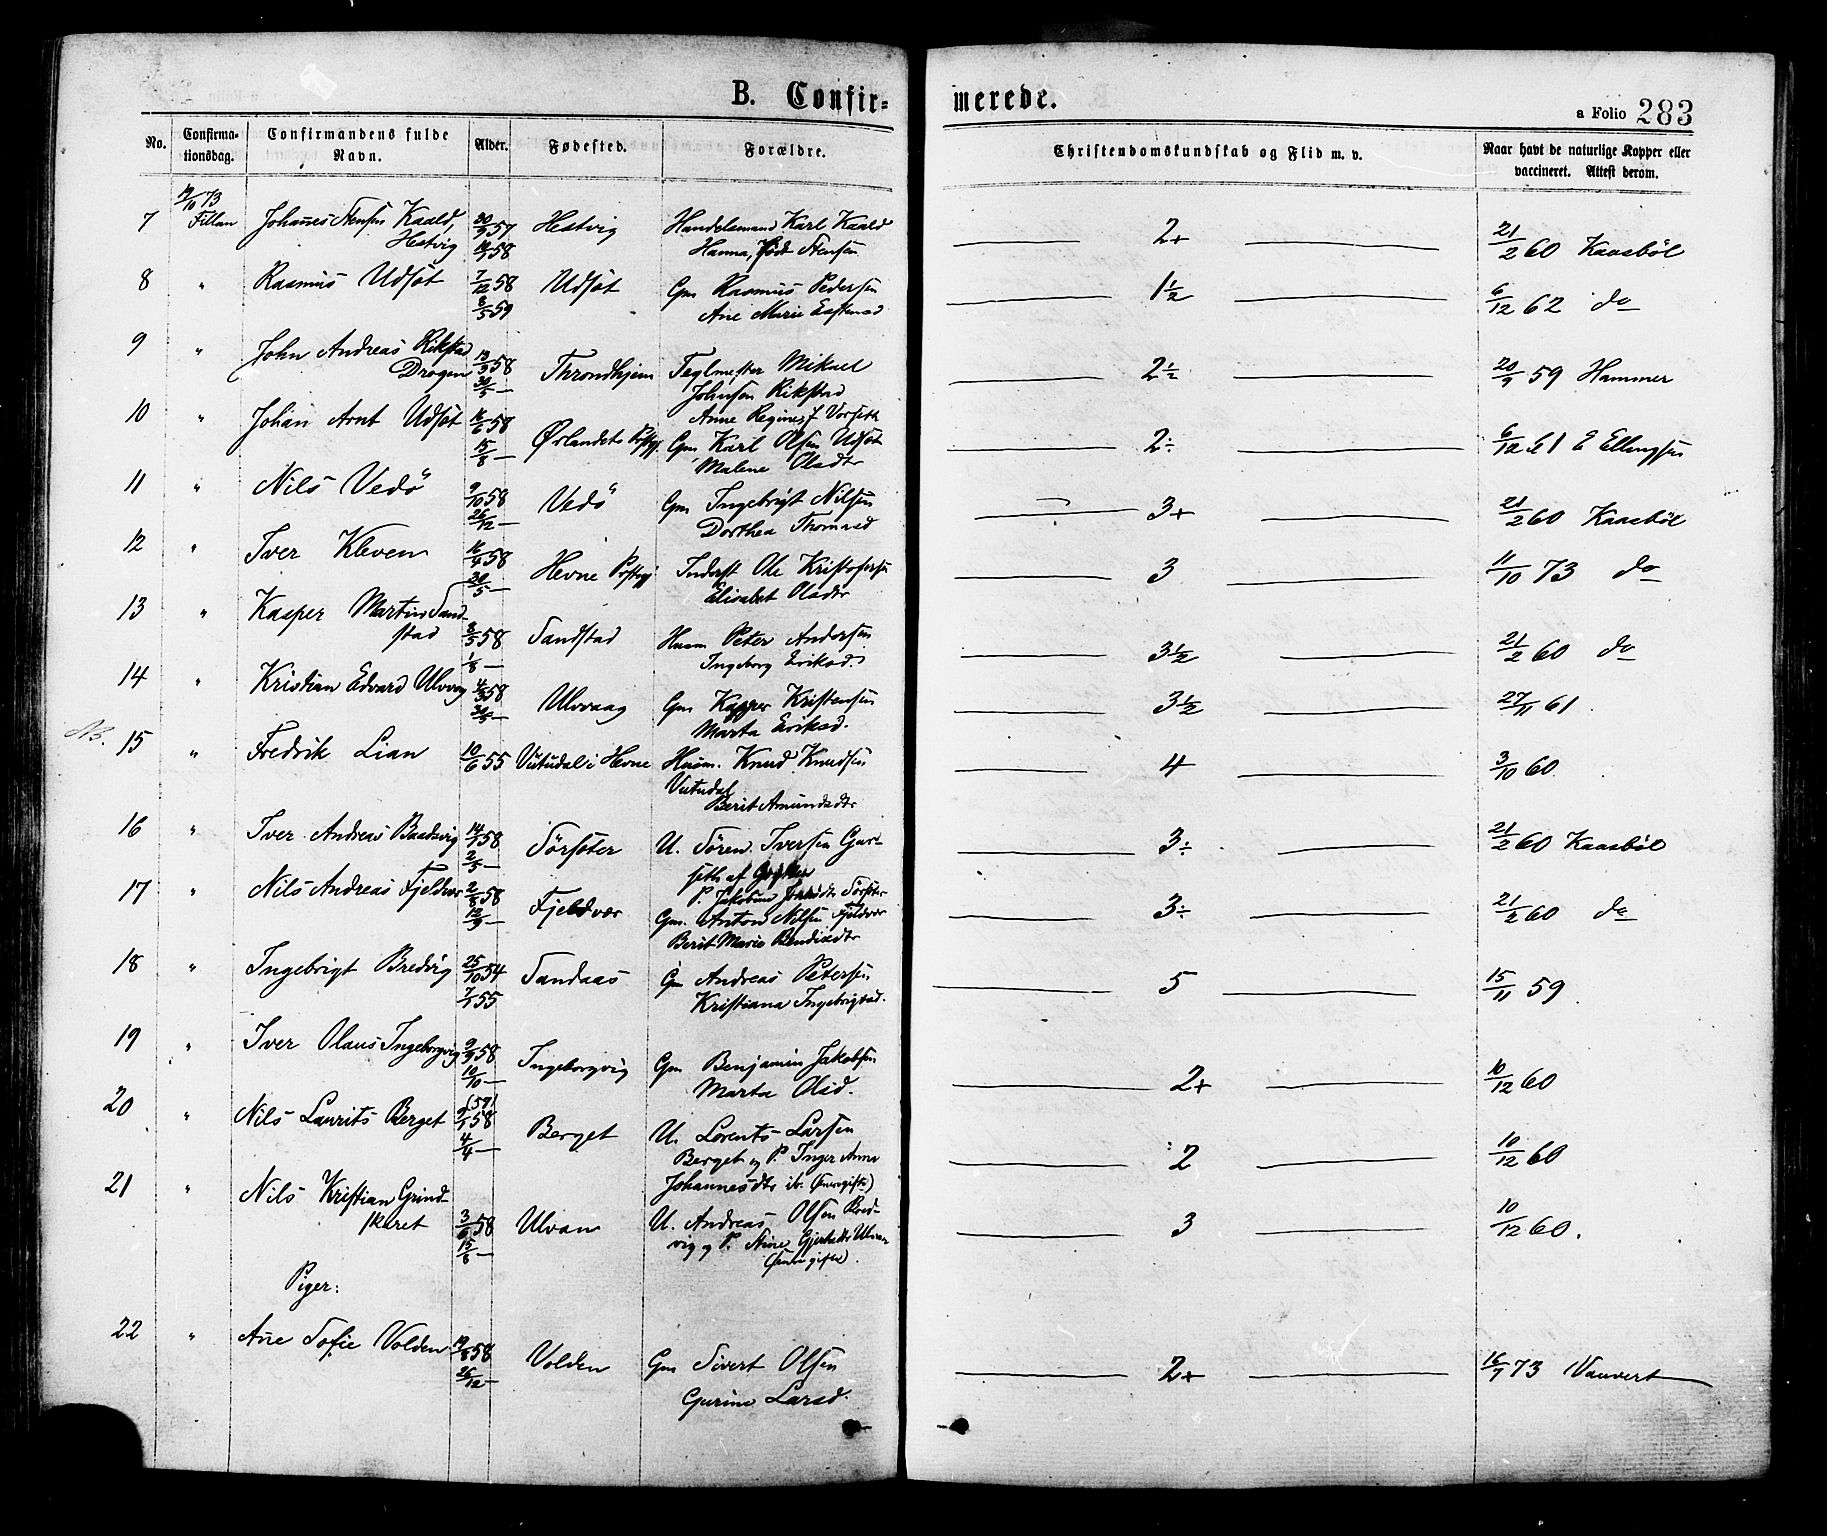 B. Confir-
merede.
a Folio 283
No.
Confirma-
tionsdag.
Confirmandens fulde
Navn.
Alder.
Fødested.
Forældre.
Christendomskundskab og Flid m. v.
Naar havt de naturlige Kopper eller
vaccineret. Attest derom.
19/10 73
7 Fillan Johanes Stensen Kaald, 30/9 57 Hestvig Handelsmand Karl Kaald 2+ 21/2 60 Kaasbøl
Hestvig 58 Hanna, født Stensen
8 " Rasmus Udsøt 7/12 58 Udsøt Gm Rasmus Pedersen 1½ 6/12 62 do
8/5 59 Ane Marie
9 " John Andreas Rikstad 13/3 58 Throndhjem Teglmester Mikael 2½ 20/9 59 Hammer
Dragen 30/5 — Johnsen Rikstad
Anne Regine f. Vorseth
10 " Johan Arnt Udsøt 16/6 58 Ørlandets Pstgj. Gm Karl Olsen Udsøt 2÷ 6/12 61 E Ellingsen
15/8 — Malene Olsdtr
11 " Nils Vedö 9/10 58 Vedö Gm Ingebrigt Nilsen 3+ 21/2 60 Kaasbøl
26/12 — Dorthea Thomasd
12 " Iver Kleven 16/4 58 Hevne Pstgj Inderst Ole Kristofersn 3 11/10 73 do
30/5 — Elisabet Olsdtr
13 " Kasper Martin Sand-
stad 8/5 58 Sandstad Husm Peter Andersen 3½ 21/2 60 do
1/8 — Ingeborg Eriksd.
14 " Kristian Edvard Ulvvag 4/3 58 Ulvvaag Gm Kasper Kristensen 3½ 27/11 61.
30/5 — Marta Eriksd.
NB. 15 " Fredrik Lian 10/6 55 Vutudal i Hevne Husm. Knud Knudsen 4 3/10 60.
Vutudal
Berit Amundsdtr
16 " Iver Andreas Badsvig 14/1 58 Sörsöter U. Sören Iversen Gur- 3÷ 21/2 60 Kaasböl
2/5 — seth af
P. Jakobine Sörsöter
17 " Nils Andreas Fjeldvær 2/8 58 Fjeldvær Gm. Anton Nilsen Fjeldvær 3÷ 21/2 60 do
12/9 — Berit Marie Bendixdtr
18 " Ingebrigt Bredvig 25/10 54 Sandaas Gm Andreas Petersen 5 15/11 59.
7/1 55 Kristiana Ingebrigtsd.
19 " Iver Olaus Ingeborgvig 9/9 58 Ingeborgvig Gm Benjamin Jakobsen 2+ 10/12 60
10/10 — Marta Olsd.
20 " Nils Laurits Berget (57) 58 Berget U. Lorents Larsen 2 10/12 60
4/4 — Berget og P. Inger Anna
Johannesdtr ib. (Ømvgifte)
21 " Nils Kristian Grind-
skaret 3/6 58 Ulvan U. Andreas Olsen Bred- 3 10/12 60.
15/8 — vig og P. Stine Gjertsdtr Ulvan
Piger:
22 " Ane Sofie Volden 19/8 58 Volden Gm Sivert Olsen 2+ 16/7 73 Vauvert
26/12 — Gurine Larsd.